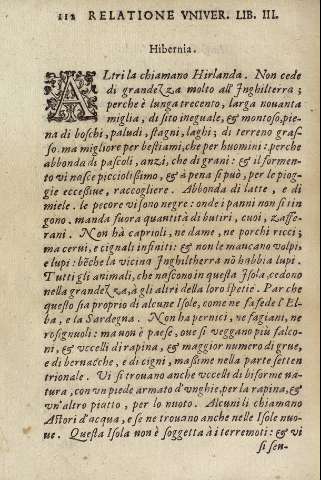 112 RELATIONE VNIVER. LIB. III.
Hibernia.
ALtri la chiamano Hirlanda. Non cede
di grandezza molto all' Inghilterra;
perche è lunga trecento, larga nouanta
miglia, di sito ineguale, & montoso, pie-
na di boschi, paludi, stagni, laghi; di terreno gras-
so: ma migliore per bestiami, che per huomini: perche
abbonda di pascoli, anzi, che di grani: & il formen-
to vi nasce picciolissimo, & à pena si può, per le piog-
gie eccessiue, raccogliere. Abbonda di latte, e di
miele. le pecore vi sono negre: onde i panni non si tin
gono. manda fuora quantità di butiri, cuoi, zaffe-
rani. Non hà caprioli, ne dame, ne porchi ricci;
ma cerui, e cignali infiniti: & non le mancano volpi,
e lupi: bẽche la vicina Inghiltherra nõ habbia lupi.
Tutti gli animali, che nascono in questa Isola, cedono
nella grandezza, à gli altri della loro spetie. Par che
questo sia proprio di alcune Isole, come ne fà fede l' El
ba, e la Sardegna. Non ha pernici, ne fagiani, ne
rosignuoli: ma non è paese, oue si veggano più falco-
ni, & vccelli di rapina, & maggior numero di grue,
e di bernacche, e di cigni, massime nella parte setten
trionale. Vi si trouano anche vccelli di biforme na-
tura, con vn piede armato d'vnghie, per la rapina, &
vn'altro piatto, per lo nuoto. Alcuni li chiamano
Astori d'acqua, e se ne trouano anche nelle Isole nuo-
ue. Questa Isola non è soggetta à i terremoti: & vi
si sen-